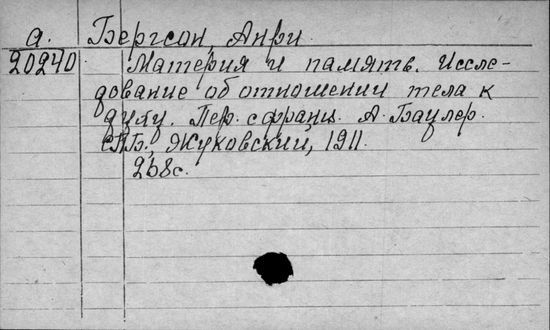 а. Бергсон, Анри.
20240 Материя и память. Иссле-
дование об отношении тела к
духу. Пер. с франц. А. Баулер.
СПБ., Жуковский, 1911.
258с.